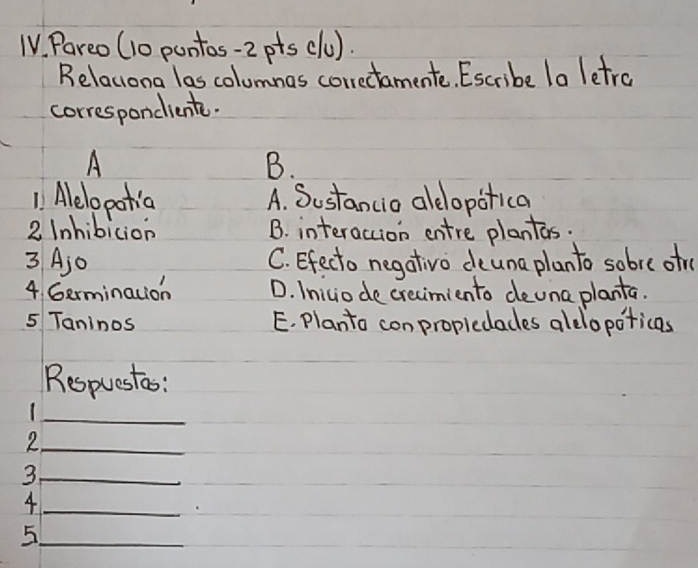 IV. Pareo (10 puntos - 2 pts c/u).
Relaciona las columnas correctamente. Escribe la letra
correspondiente.
A B.
1) Alelopatía A. Sustancia alelopática
2 Inhibición B. interacción entre plantas.
3 Ajo C. Efecto negativo de una planta sobre otra
4 Germinación D. Inicio de crecimiento de una planta.
5 Taninos E. Planta con propiedades alelopáticas
Respuestas:
1
2
3
4
5